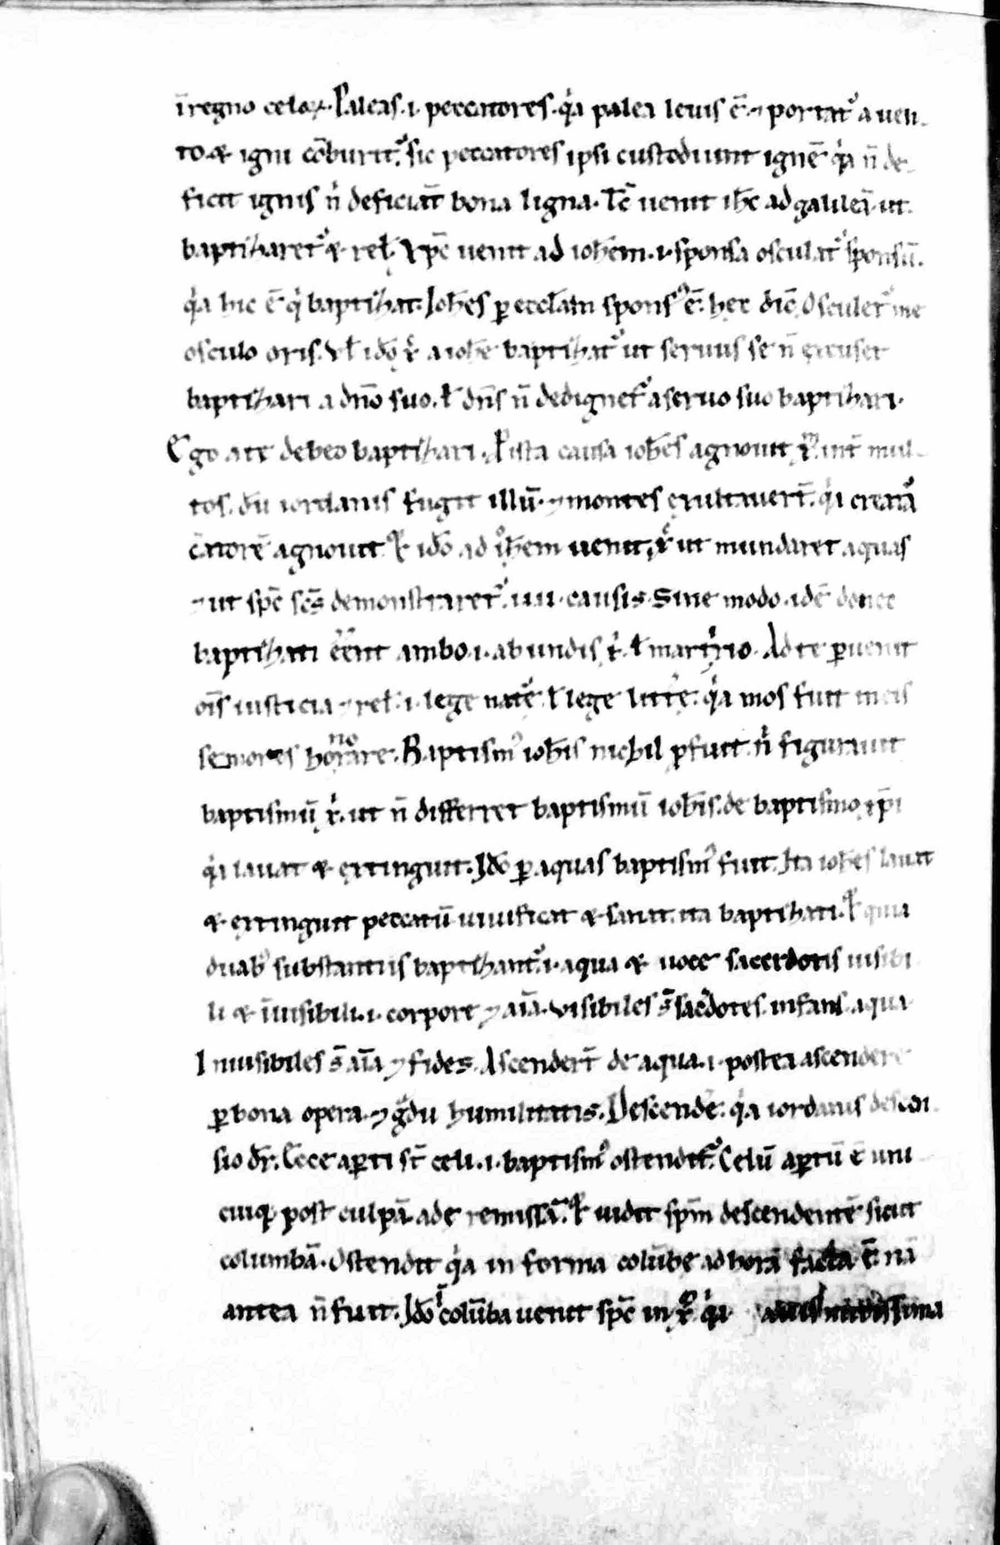 i̅regno celoꝝ. Paleas .i. peccatores. qͥa palea leuis e̅. ⁊ portat᷑ a uen
to & igni co̅burit᷑. sic peccatores ipsi custodiunt igne̅ qͥa n̅ de
ficit ignis nͥ deficiat̅ bona ligna. Tc̅ uenit ih̅c ad galilea̅. ut
baptiharet᷑ & rel. Xp̅c uenit ad ioh̅em .i. sponsa osculat᷑ sponsu̅.
qͥa hic e̅ qͥ baptihat. Ioh̅es ꝑ eccl̅am spons᷒ e̅. hec dic̅ Osculet᷑ me
osculo oris. Vl̵ ido̅ a ioh̅e baptihat᷑ ut seruus se n̅ excuset
baptihari a dn̅o suo. l̵ dn̅s n̅ dedignet᷑ a seruo suo baptihari.
Ego a te debeo baptihari. ista causa ioh̅es agnouit int̅ mul
tos. du̅ iordanis fugit illu̅. ⁊ montes exultauert̅. qͥ creat᷑a
c̅atore̅ agnouit ido̅ ad ioh̅em uenit, ut mundaret aquas
⁊ ut sp̅c sc̅s demonstraret᷑. iiii. causis. Sine modo. ide̅ donec
baptihati ee̅nt ambo .i. ab undis l̵ martirio. Ad te ꝑuenit
oi̅s iusticia ⁊ rel. .i. lege nat᷑e l̵ lege litt̅e. qͥa mos fuit meis
semores honorare. Baptism᷒ ioh̅is nichil ꝓfuit. nͥ figurauit
baptismu̅ ut n̅ differret baptismu̅ ioh̅is. de baptismo xp̅i
qͥ lauat & extinguit. Ido̅ ꝑ aquas baptism᷒ fuit. Ita ioh̅es lauit
& extinguit peccatu̅ uiuificat & sanat. ita baptihati. quia
duab᷒ substantiis baptihant᷑ .i. aqua & uoce sacerdotis uisibi
li & i̅uisibili .i. corpore ⁊ ai̅a. Visibiles s̅ sac̅dotes. infans. aqua
Inuisibiles s̅ ai̅a ⁊ fides. Ascendert̅ de aqua .i. postea ascendere
ꝑ bona opera. ⁊ g̅du humilitatis. Descende̅. qͥa iordanis descen
sio dr̅. Ecce aꝑti st̅ celi .i. baptism᷒ ostendit᷑. Celu̅ aꝑtu̅ e̅ uni
cuiq; post culpa̅ ade remissa̅. uidit sp̅m descendente̅ sicut
columba̅. Ostendit qͥa in forma colu̅be ad hora̅ facta e̅ na̅
antea n̅ fuit. Ido̅ colu̅ba uenit sp̅c in qͥa